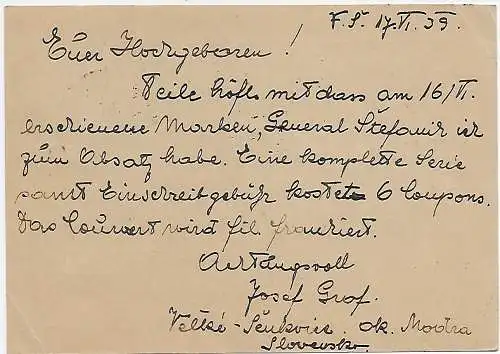 F.S. 17.VI.39.
Euer Hochgeboren!
Teile höfl. mit dass am 16/VI.
erschienene Marken, General Štefanik ich
zum Absatz habe. Eine komplette Serie
samt Einschreibgebühr kostet 6 Coupons.
Das Couvert wird fil. frankiert.
Achtungsvoll
Josef Graf.
Velké-Šenkvice. ok. Modra
Slovensko